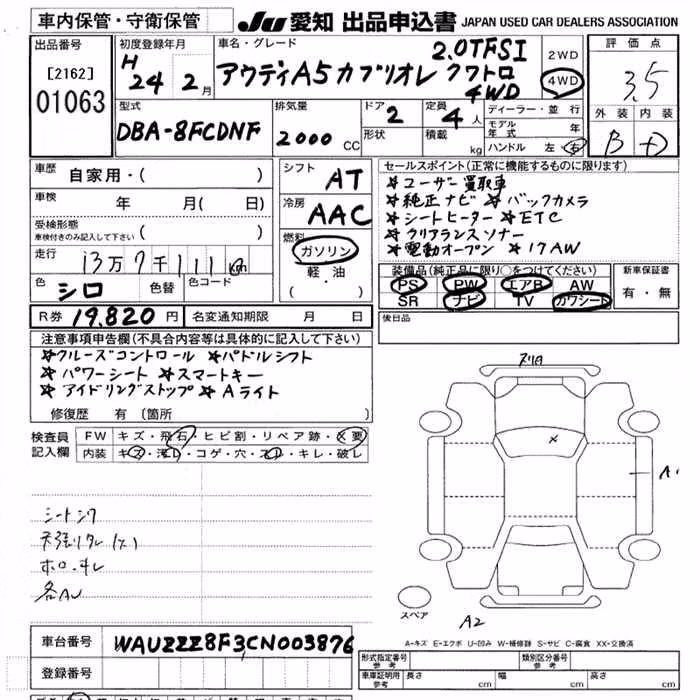 車内保管・守衛保管
JU 愛知 出品申込書 JAPAN USED CAR DEALERS ASSOCIATION
出品番号
[2162]
01063
初度登録年月
H 24 年 2 月
車名・グレード
2.0TFSI
アウディA5カブリオレ クワトロ
4WD
2WD
4WD
評価点
3.5
外装 内装
B D
型式
DBA-8FCDNF
排気量
2000 CC
ドア
2
形状
定員
4 人
積載
kg
ディーラー・並行
モデル年式 年
ハンドル 左 右
車歴
自家用・( )
車検
年 月( 日)
受検形態
車検付きのみ記入して下さい ( )
走行
13万7千111 km
色
シロ
色替
色コード
シフト
AT
冷房
AAC
燃料
ガソリン
軽・油
( ・ )
R券 19,820 円 名変通知期限 月 日
セールスポイント(正常に機能するものに限ります)
☆ユーザー買取車
☆純正ナビ ☆バックカメラ
☆シートヒーター ☆ETC
☆クリアランスソナー
☆電動オープン ☆17AW
装備品(純正品に限り○をつけてください)
PS PW エアB AW
SR ナビ TV カワシート
新車保証書
有・無
後日品
注意事項申告欄(不具合内容等は具体的に記入して下さい)
☆クルーズコントロール ☆パドルシフト
☆パワーシート ☆スマートキー
☆アイドリングストップ ☆Aライト
修復歴 有 〔箇所 〕
検査員
記入欄
FW キズ・飛石・ヒビ割・リペア跡・X要
内装 キズ・汚レ・コゲ・穴・スレ・キレ・破レ
シートシワ
各AU
X
A1
A2
スペア
A-キズ E-エクボ U-凹み W-補修跡 S-サビ C-腐食 XX-交換済
車台番号 WAUZZZ8F3CN003876
登録番号
形式指定番号
参考
類別区分番号
参考
車庫証明用
参考
長さ cm 幅 cm 高さ cm